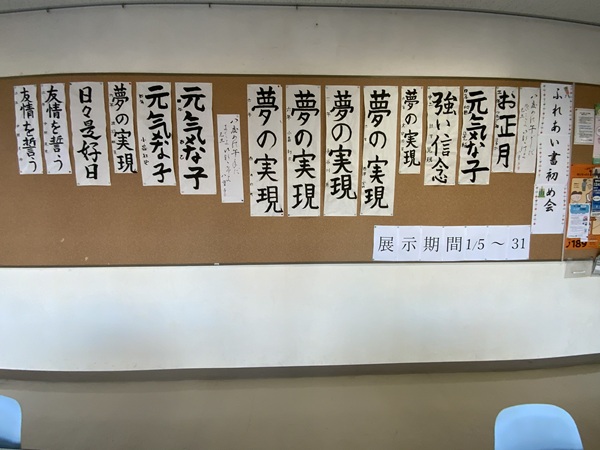 ふれあい書初め会
お正月
元気な子
強い信念
夢の実現
夢の実現
夢の実現
夢の実現
夢の実現
元気な子
元気な子
夢の実現
日々是好日
友情を誓う
友情を誓う
展示期間1/5～31
189